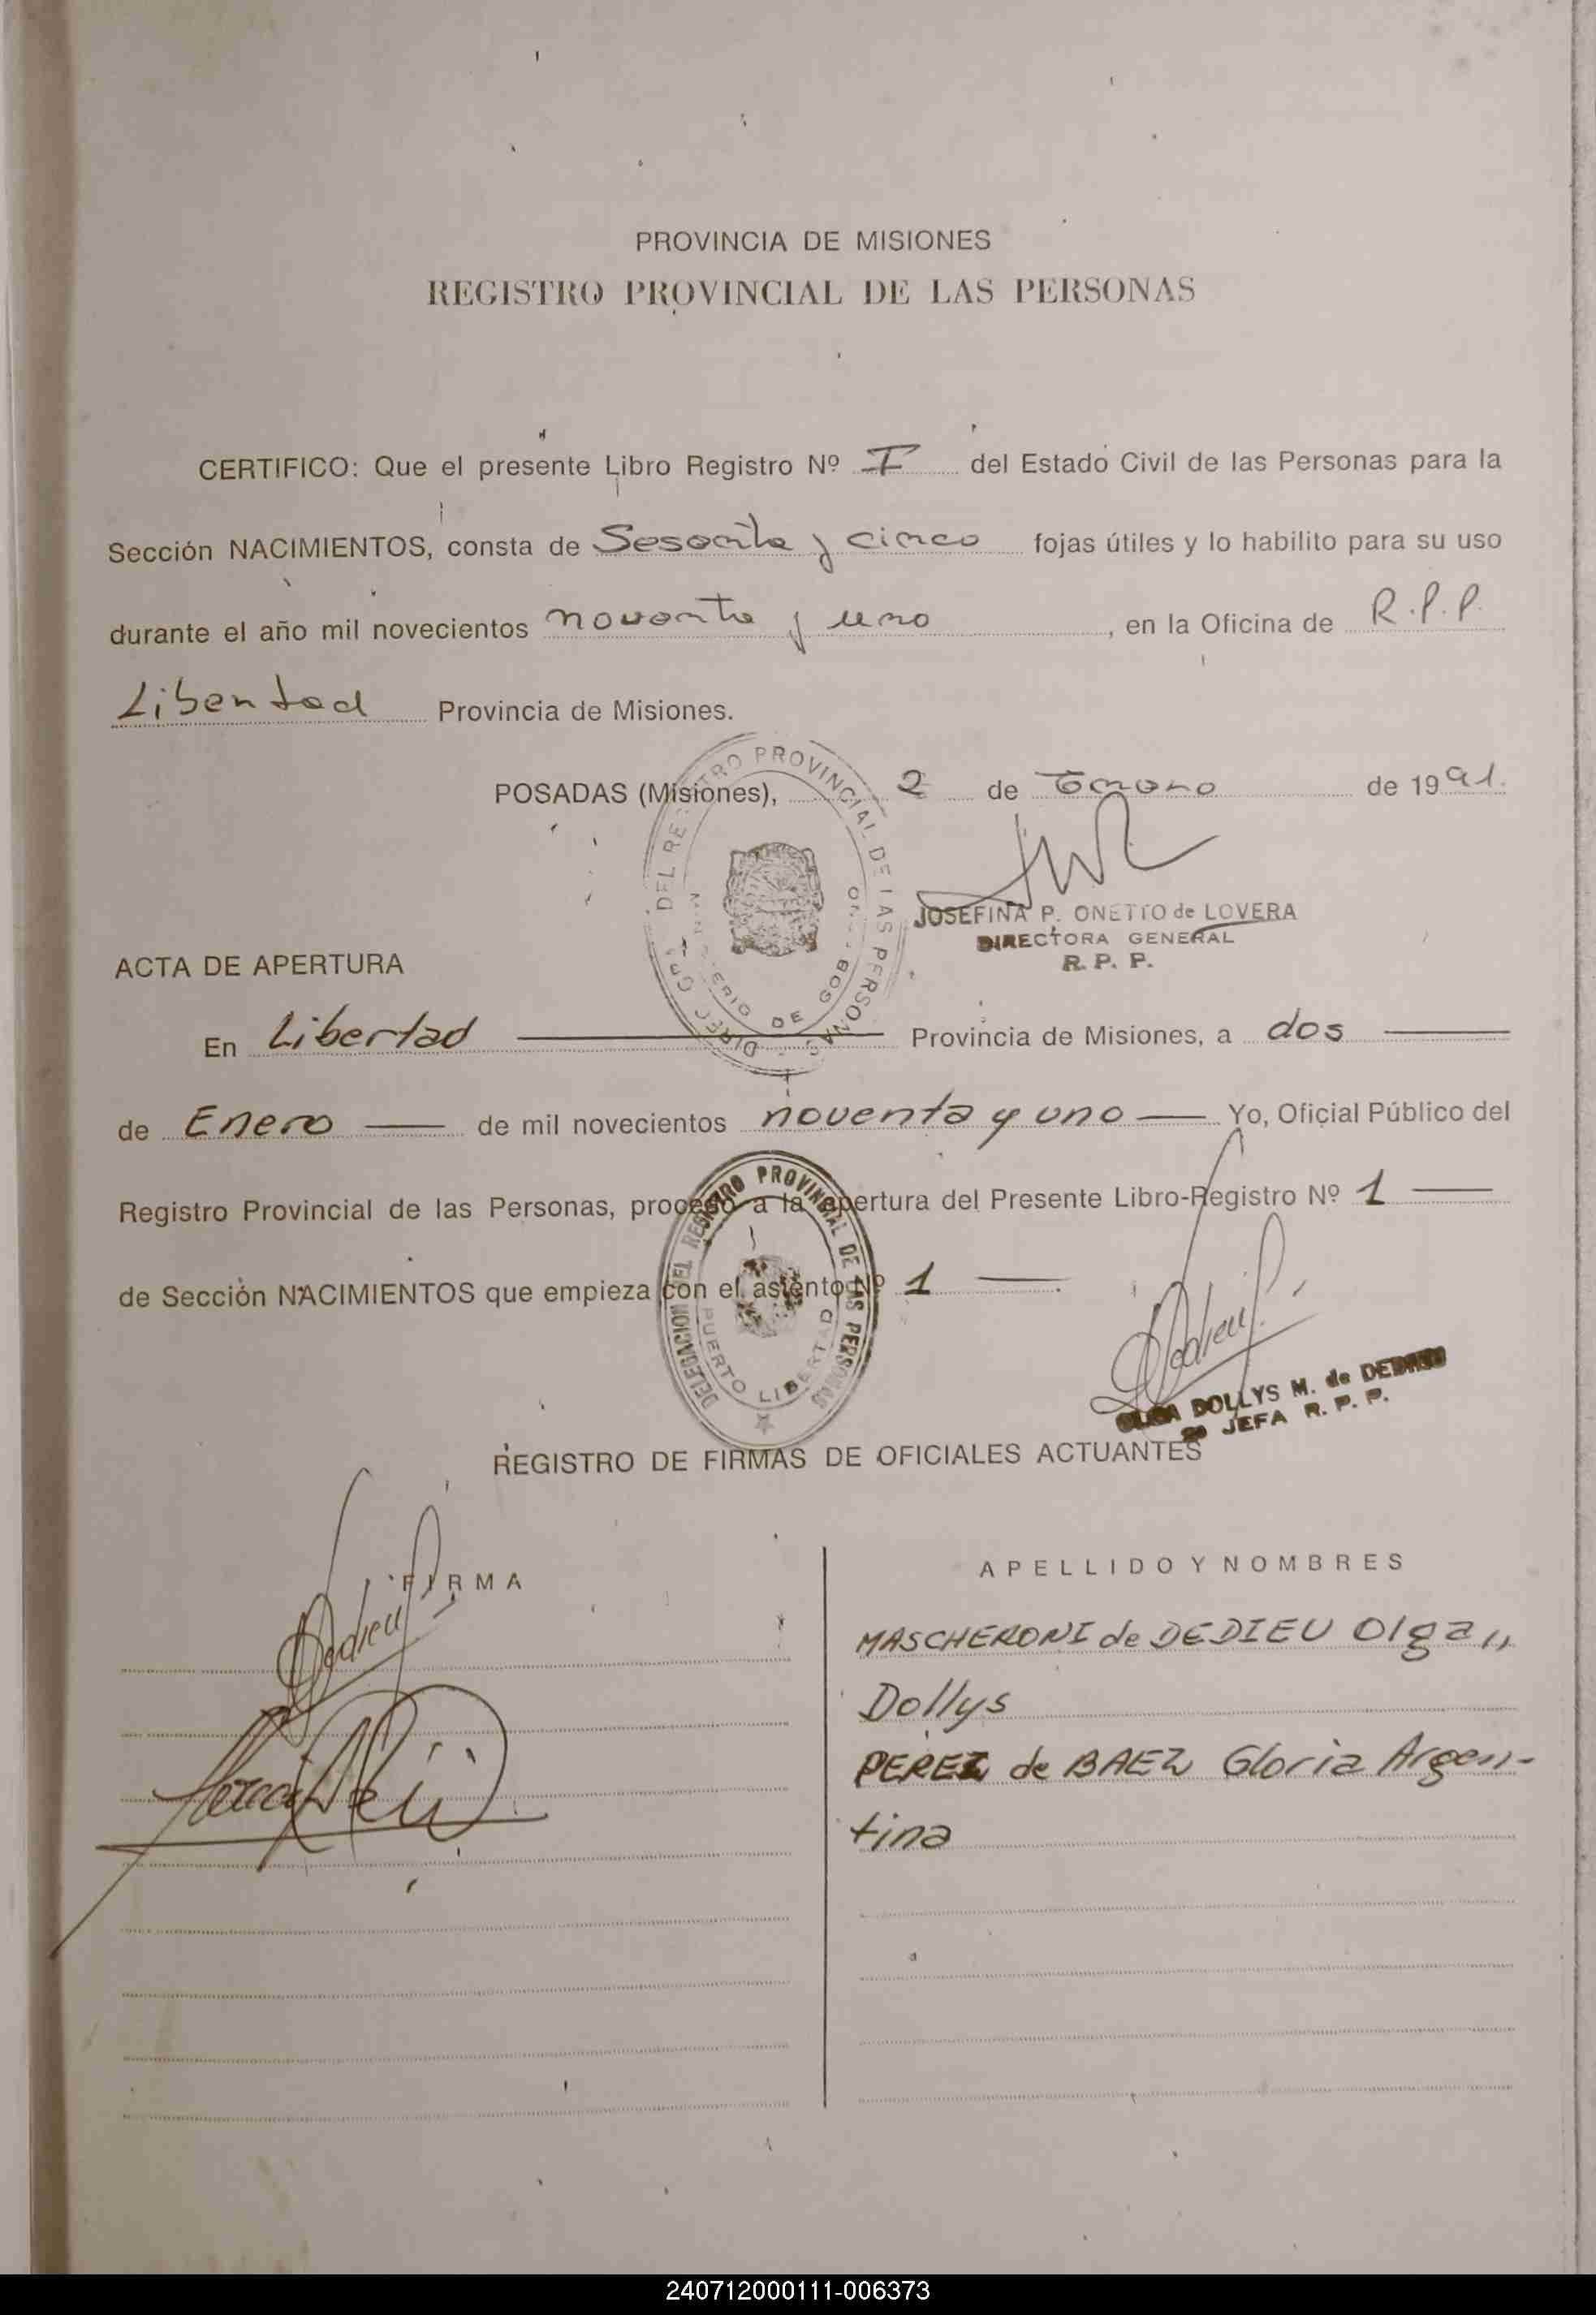 PROVINCIA DE MISIONES
REGISTRO PROVINCIAL DE LAS PERSONAS
CERTIFICO: Que el presente Libro Registro Nº I del Estado Civil de las Personas para la
Sección NACIMIENTOS, consta de Sesenta y cinco fojas útiles y lo habilito para su uso
durante el año mil novecientos noventa y uno, en la Oficina de R.P.P.
Libertad Provincia de Misiones.
POSADAS (Misiones), 2 de Enero de 1991.
DIREC. GRAL DEL REGISTRO PROVINCIAL DE LAS PERSONAS
MINISTERIO DE GOB
JOSEFINA P. ONETTO de LOVERA
DIRECTORA GENERAL
R. P. P.
ACTA DE APERTURA
En Libertad Provincia de Misiones, a dos
de Enero de mil novecientos noventa y uno Yo, Oficial Público del
Registro Provincial de las Personas, procedo a la apertura del Presente Libro-Registro Nº 1
de Sección NACIMIENTOS que empieza con el asiento Nº 1.
DELEGACION DEL REGISTRO PROVINCIAL DE LAS PERSONAS
PUERTO LIBERTAD
OLGA DOLLYS M. de DEDIEU
JEFA R. P. P.
REGISTRO DE FIRMAS DE OFICIALES ACTUANTES
FIRMA
APELLIDO Y NOMBRES
MASCHERONI de DEDIEU Olga,,
Dollys
PEREZ de BAEZ Gloria Argen-
tina
240712000111-006373